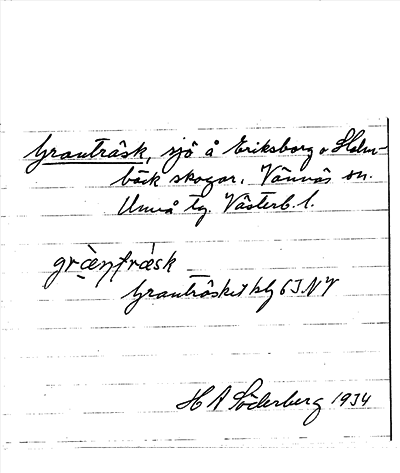 Granträsk, sjö å Eriksborg o Holm-
bäck skogar. Vännäs sn.
Umeå tg. Västerb. l.
Granträsket blg 6 I NV
H A Söderberg 1934